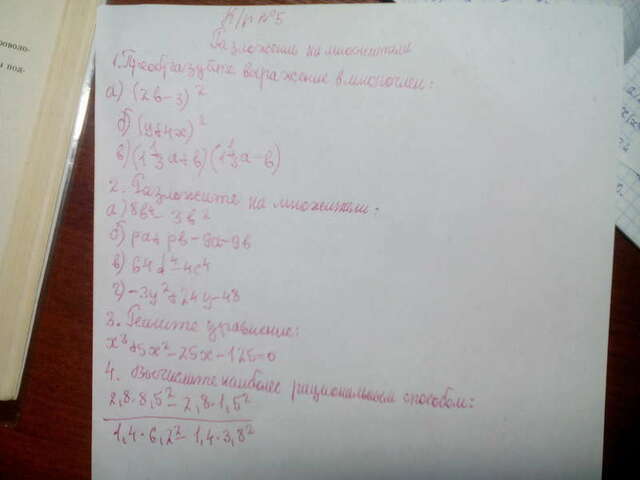 К/р №5
Разложение на множители
1. Преобразуйте выражение в многочлен:
а) (2в-3)²
б) (9+4x)²
в) (1 1/3 а+в) (1 1/3 а-в)
2. Разложите на множители:
а) 8в⁴- 3в²
б) pa+pв-9a-9в
в) 64d⁴-4c⁴
г) -3y²+24y-48
3. Решите уравнение:
x³+5x²-25x-125=0
4. Вычислите наиболее рациональным способом:
2,8·8,5²- 2,8·1,5²
1,4·6,2²- 1,4·3,8²